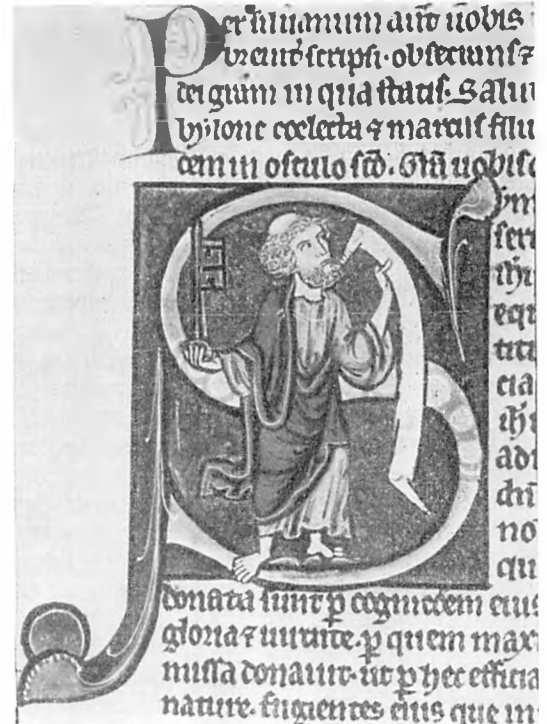 Per siluanum aut̄ uobis
breuit̄ scripsi. obsecrans ⁊
dei gr̄am in qua statis. Salu
bylone coelecta ⁊ marcus filiu
cem in osculo sc̄o. Gr̄a uobis
S ym
ser
ih̄u
equ
titi
cia
ih̄
adi
no
qu
donata sunt ꝑ cognitōem eius
gloria ⁊ uirtute. ꝑ quem max
missa donauit. ut ꝑ hec efficia
nature. fugientes eius que in